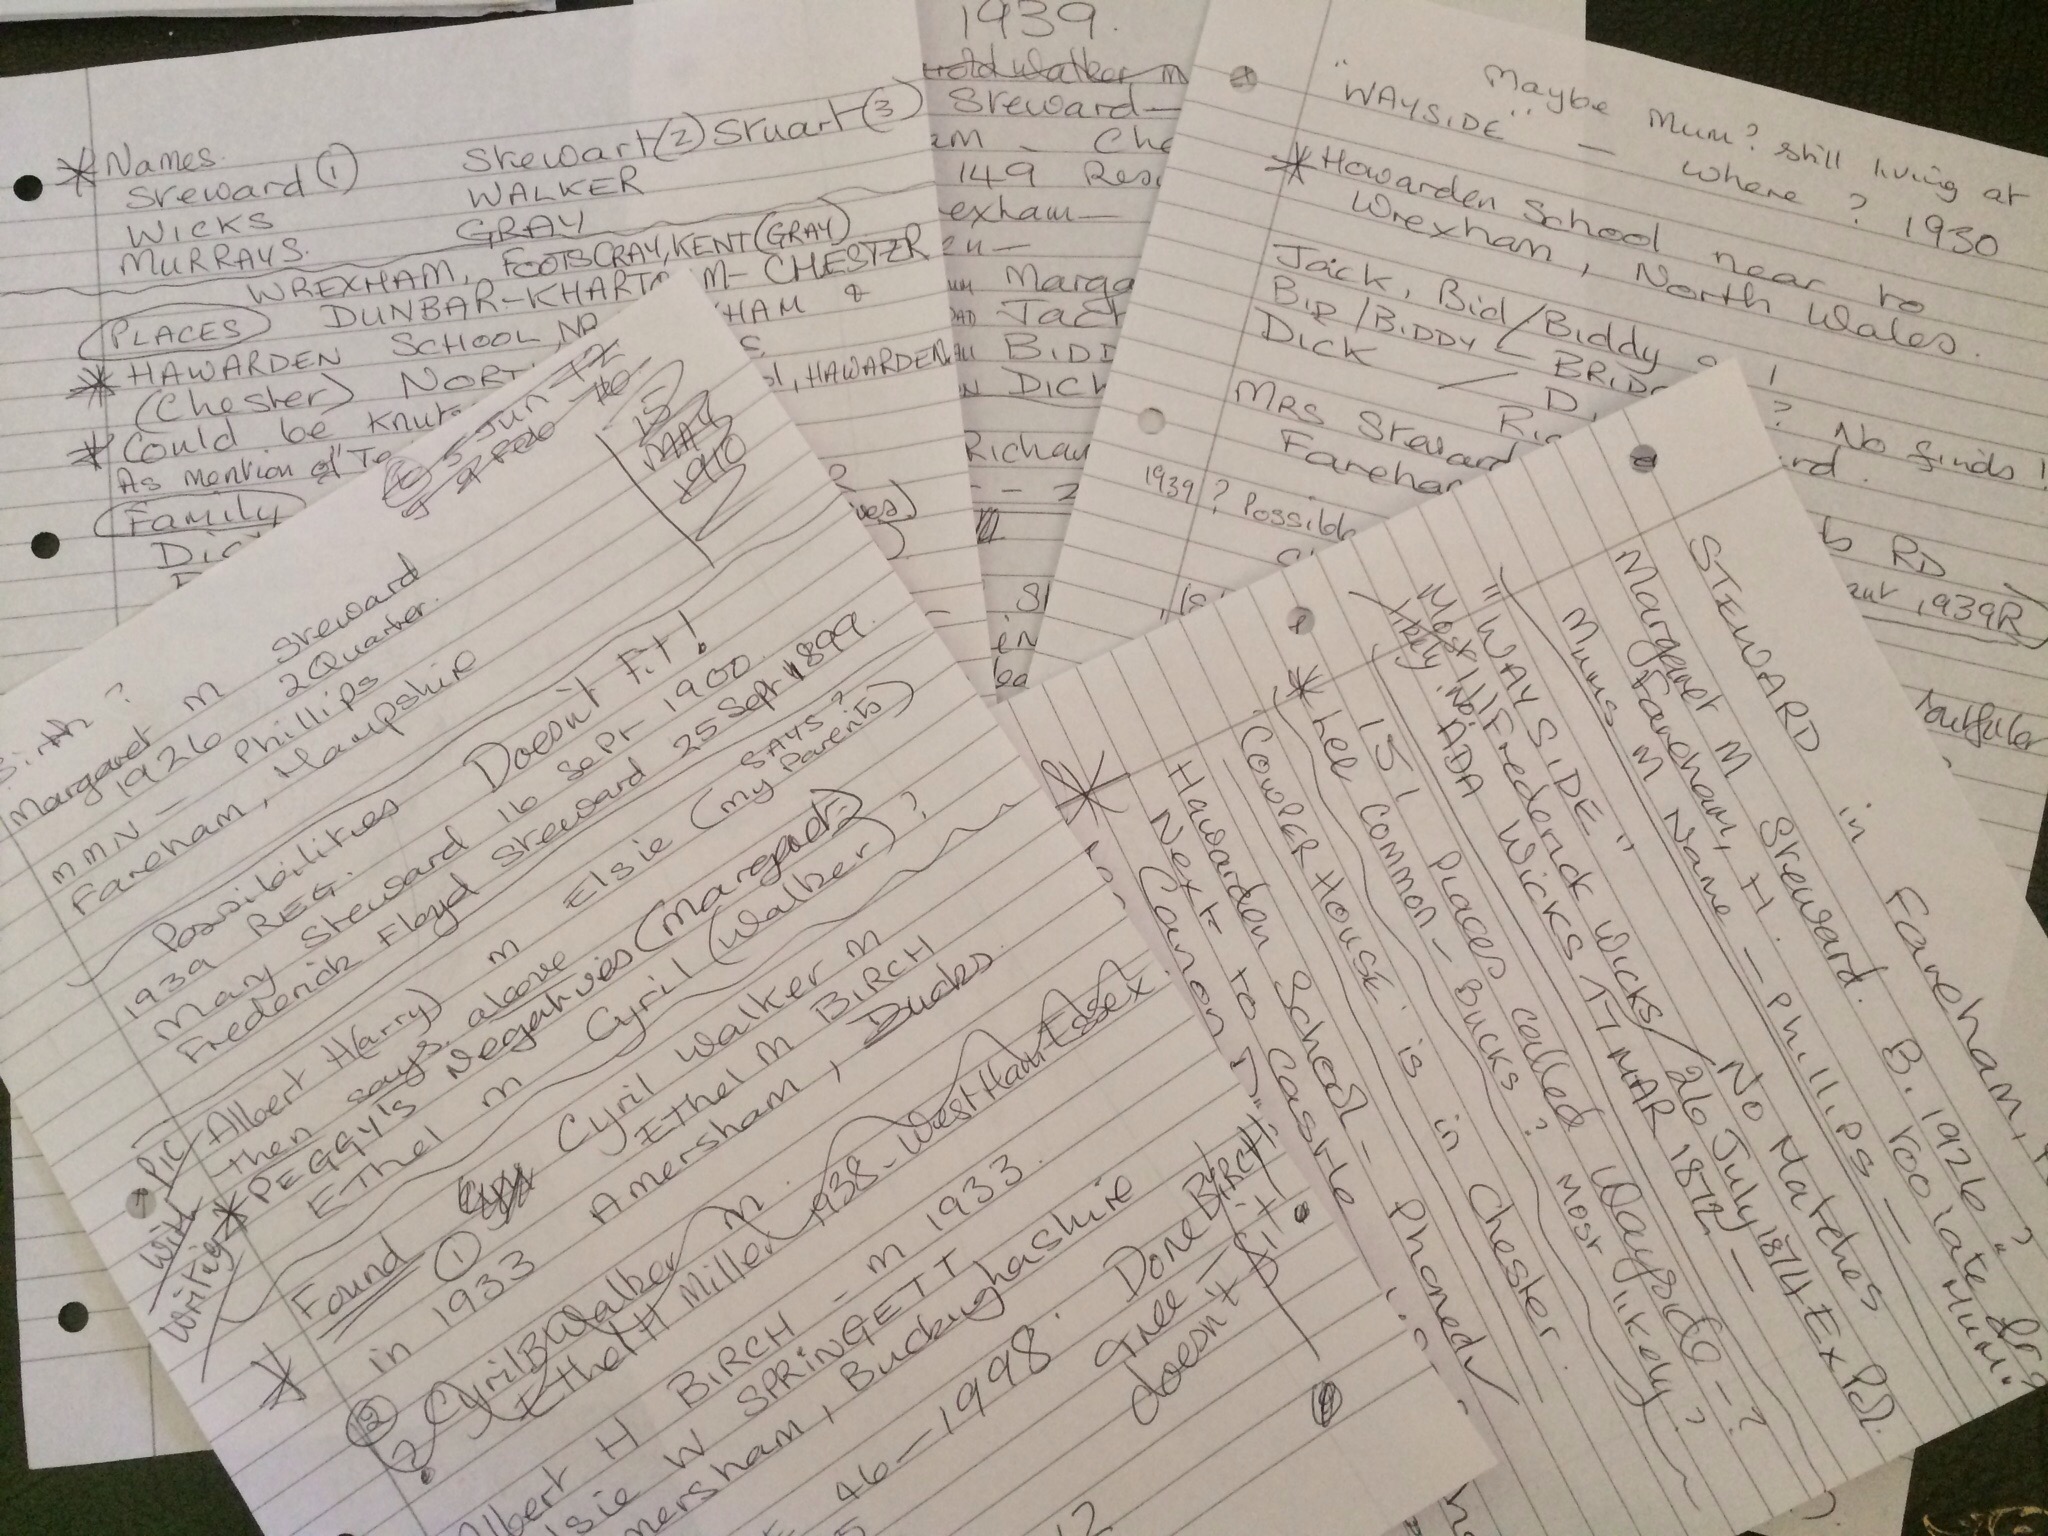 * Names
Steward ① Stewart ② Stuart ③
WICKS WALKER
MURRAYS. GRAY
WREXHAM, FOOTSCRAY, KENT (GRAY)
PLACES DUNBAR-KHART M-CHESTER
* HAWARDEN SCHOOL, HAM &
(Chester) NORT
l, HAWARDEN
* Could be Knuts
As mention of "To
Family
1939.
Walker m
Steward—
m - Che
149 Resi
exham—
Marga
Jack
BIDD
DICK
Richa
Maybe Mum? still living at
"WAYSIDE" — where? 1930
* Howarden School near to
Wrexham, North Wales.
Jack, Bid/Biddy or
BIP/BIDDY BRID
DICK / D
Ric
? No finds!
Mrs Steward
Fareham
1939? Possible
RD
1939R
5 Jun
15
MAY
1910
Birth?
Margaret M Steward
1926 2 Quarter.
MMN - Phillips
Fareham, Hampshire
Possibilities Doesn't Fit!
1939 REG.
Mary Steward 16 Sept 1900
Frederick Floyd Steward 25 Sept 1899
* PIC/ Albert H(arry) m Elsie (my Parents)
SAYS?
With Writing
then says, above
* PEGGY's Negatives (Margaret?)
Ethel m Cyril (Walker)?
* Found ① Cyril Walker m
Ethel M BIRCH
in 1933 Amersham, Bucks.
② Cyril B Walker m
? Ethel H Miller 1938 - West Ham Essex
Albert H BIRCH - m 1933.
Elsie W SPRINGETT
Amersham, Buckinghashire
46-1998. Done BIRCH
Tree -
doesn't fit.
STEWARD in Fareham, H
Margaret M Steward. B. 1926?
Fareham, H. "Too late for
Mums M Name - Phillips - MUM.
"WAYSIDE" No Matches
Most Frederick Wicks/26 July 1874 Ex Pol.
likely. No! ADA Wicks 17 MAR 1872 -
151 places called Wayside - ?
* Lee Common - Bucks? Most likely?
Cowper House is in Chester.
* Hawarden School - Phoned ✓
Next to Castle
Canon